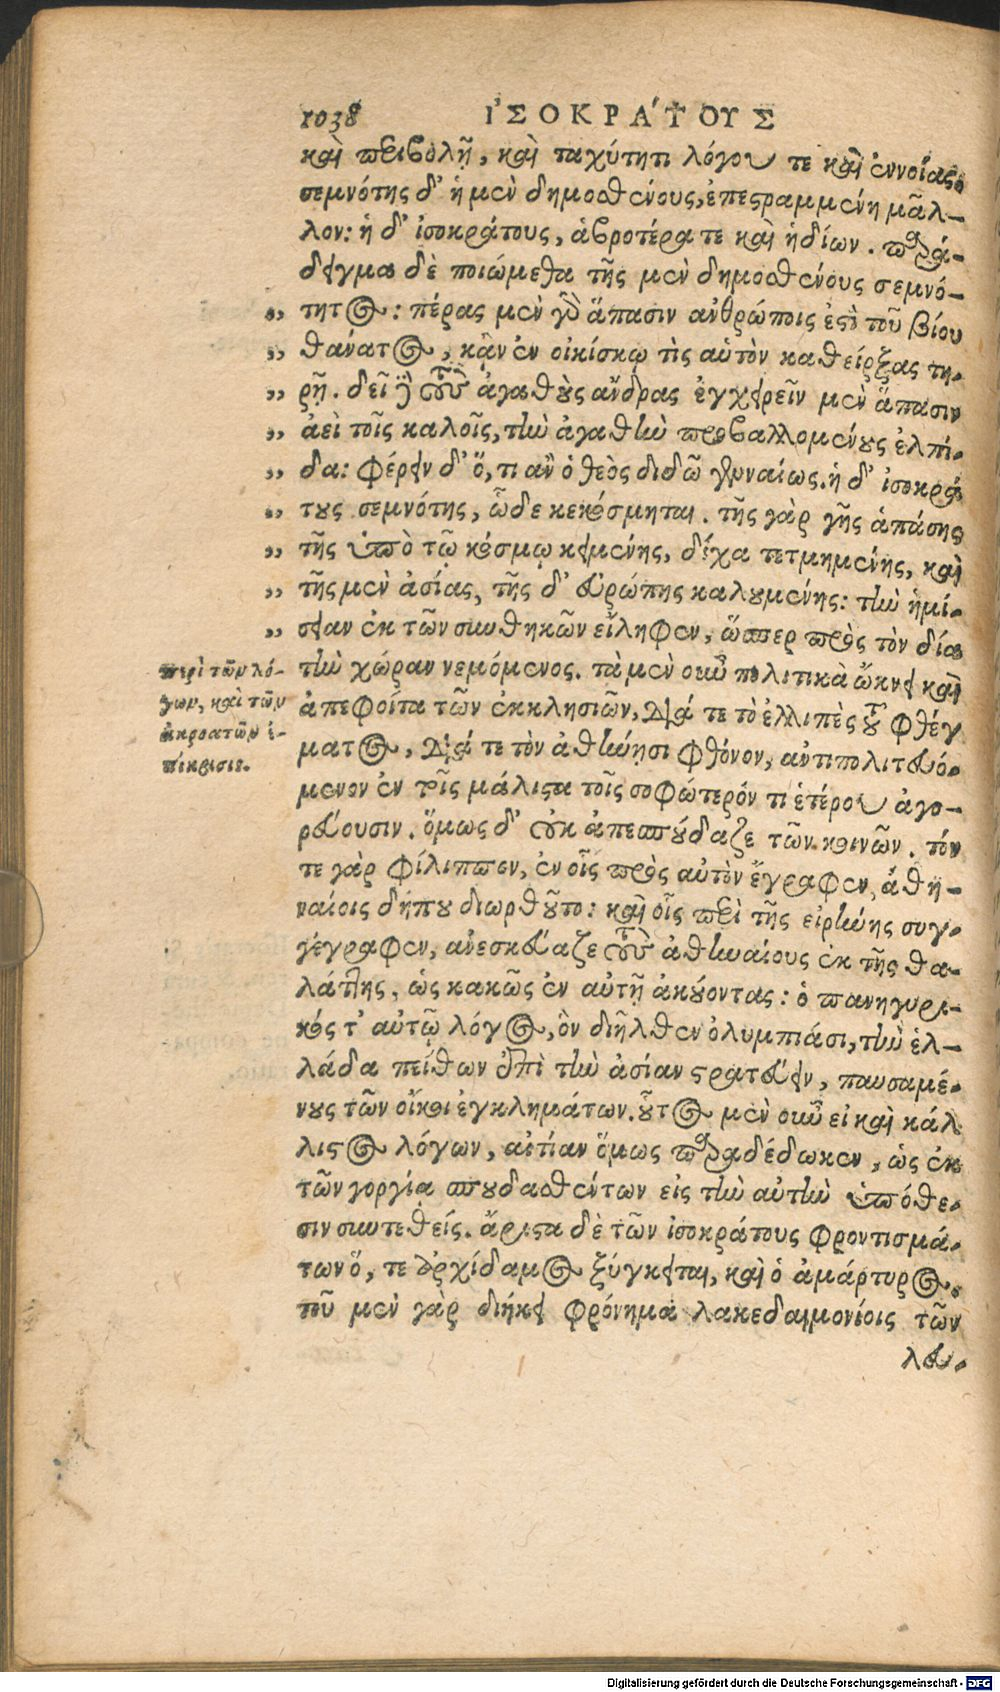 1038 ἸΣΟΚΡΆΤΟΥΣ
καὶ περιβολῇ, καὶ ταχύτητι λόγου τε καὶ ἐννοίας.
σεμνότης δ' ἡ μὲν δημοσθένους, ἐπεστραμμένη μᾶλ-
λον: ἡ δ' ἰσοκράτους, ἁβροτέρα τε καὶ ἡδίων. παρά-
δειγμα δὲ ποιώμεθα τῆς μὲν δημοσθένους σεμνό-
„ τητος: πέρας μὲν γὸ ἅπασιν ἀνθρώποις ἐστὶ τοῦ βίου
„ θάνατος, κἂν ἐν οἰκίσκῳ τὶς αὑτὸν καθείρξας τη-
„ ρῇ. δεῖ ἢ τοὺς ἀγαθοὺς ἄνδρας ἐγχειρεῖν μὲν ἅπασιν
„ ἀεὶ τοῖς καλοῖς, τὴν ἀγαθὴν προβαλλομένους ἐλπί-
„ δα: φέρειν δ' ὅ, τι ἂν ὁ θεὸς διδῶ γενναίως. ἡ δ' ἰσοκρά
„ τους σεμνότης, ὧδε κεκόσμηται. τῆς γὰρ γῆς ἁπάσης
„ τῆς ὑπὸ τῷ κόσμῳ κειμένης, δίχα τετμημένης, καὶ
„ τῆς μὲν ἀσίας, τῆς δ' εὐρώπης καλουμένης: τὴν ἡμί-
„ σειαν ἐκ τῶν συνθηκῶν εἴληφεν, ὥσπερ πρὸς τὸν δία
τὴν χώραν νεμόμενος. τὰ μὲν οὖν πολιτικὰ ὤκνει καὶ
ἀπεφοίτα τῶν ἐκκλησιῶν, διά τε τὸ ἐλλιπὲς τοῦ φθέγ
ματος, διά τε τὸν ἀθήνησι φθόνον, ἀντιπολιτευό-
μενον ἐν τοῖς μάλιστα τοῖς σοφώτερόν τι ἑτέρου ἀγο-
ρεύουσιν. ὅμως δ' οὐκ ἀπεσπούδαζε τῶν κοινῶν. τόν
τε γὰρ φίλιππον, ἐν οἷς πρὸς αὐτὸν ἔγραφεν, ἀθη-
ναίοις δήπου διωρθοῦτο: καὶ οἷς περὶ τῆς εἰρήνης συγ-
γέγραφεν, ἀνεσκεύαζε τοὺς ἀθηναίους ἐκ τῆς θα-
λάττης, ὡς κακῶς ἐν αὐτῇ ἀκούοντας: ὁ πανηγυρι-
κός τ' αὐτῷ λόγος, ὃν διῆλθεν ὀλυμπιάσι, τὴν ἑλ-
λάδα πείθων ἐπὶ τὴν ἀσίαν στρατεύειν, παυσαμέ-
νους τῶν οἴκοι ἐγκλημάτων. οὗτος μὲν οὖν εἰ καὶ κάλ
λιστος λόγων, αἰτίαν ὅμως παραδέδωκεν, ὡς ἐκ
τῶν γοργίᾳ σπουδασθέντων εἰς τὴν αὐτὴν ὑπόθε-
σιν συντεθείς. ἄριστα δὲ τῶν ἰσοκράτους φροντισμά-
των ὅ, τε ἀρχίδαμος ξύγκειται, καὶ ὁ ἀμάρτυρος.
τοῦ μὲν γὰρ διήκει φρόνημα λακεδαιμονίοις τῶν
λευ-
περὶ τῶν λό-
γων, καὶ τῶν
ἀκροατῶν ἐ-
πίκρισις.
Digitalisierung gefördert durch die Deutsche Forschungsgemeinschaft - DFG